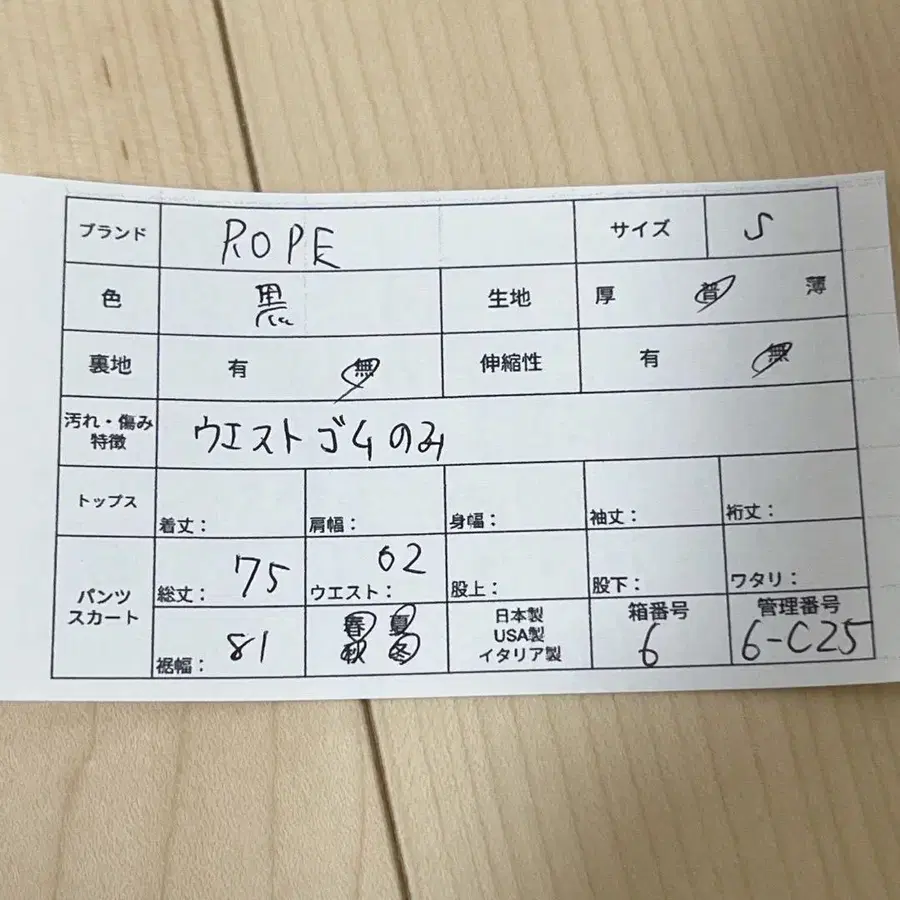 ブランド ROPE サイズ S
色 黒 生地 厚 普 薄
裏地 有 無 伸縮性 有 無
汚れ・傷み
特徴 ウエストゴムのみ
トップス 着丈: 肩幅: 身幅: 袖丈: 裄丈:
パンツ
スカート
総丈: 75 ウエスト: 62 股上: 股下: ワタリ:
裾幅: 81
春 夏
秋 冬
日本製
USA製
イタリア製
箱番号
6
管理番号
6-C25